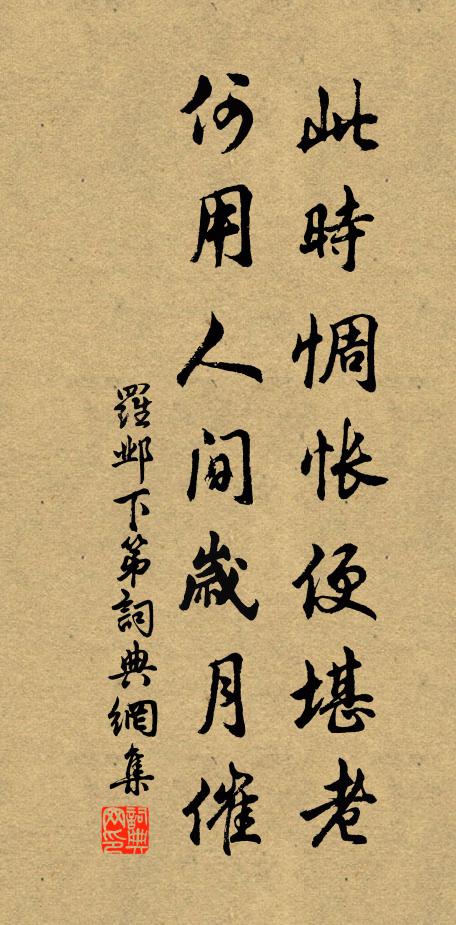 此時惆悵便堪老
何用人間歲月催
羅鄴下第詞典網集
詞典網印